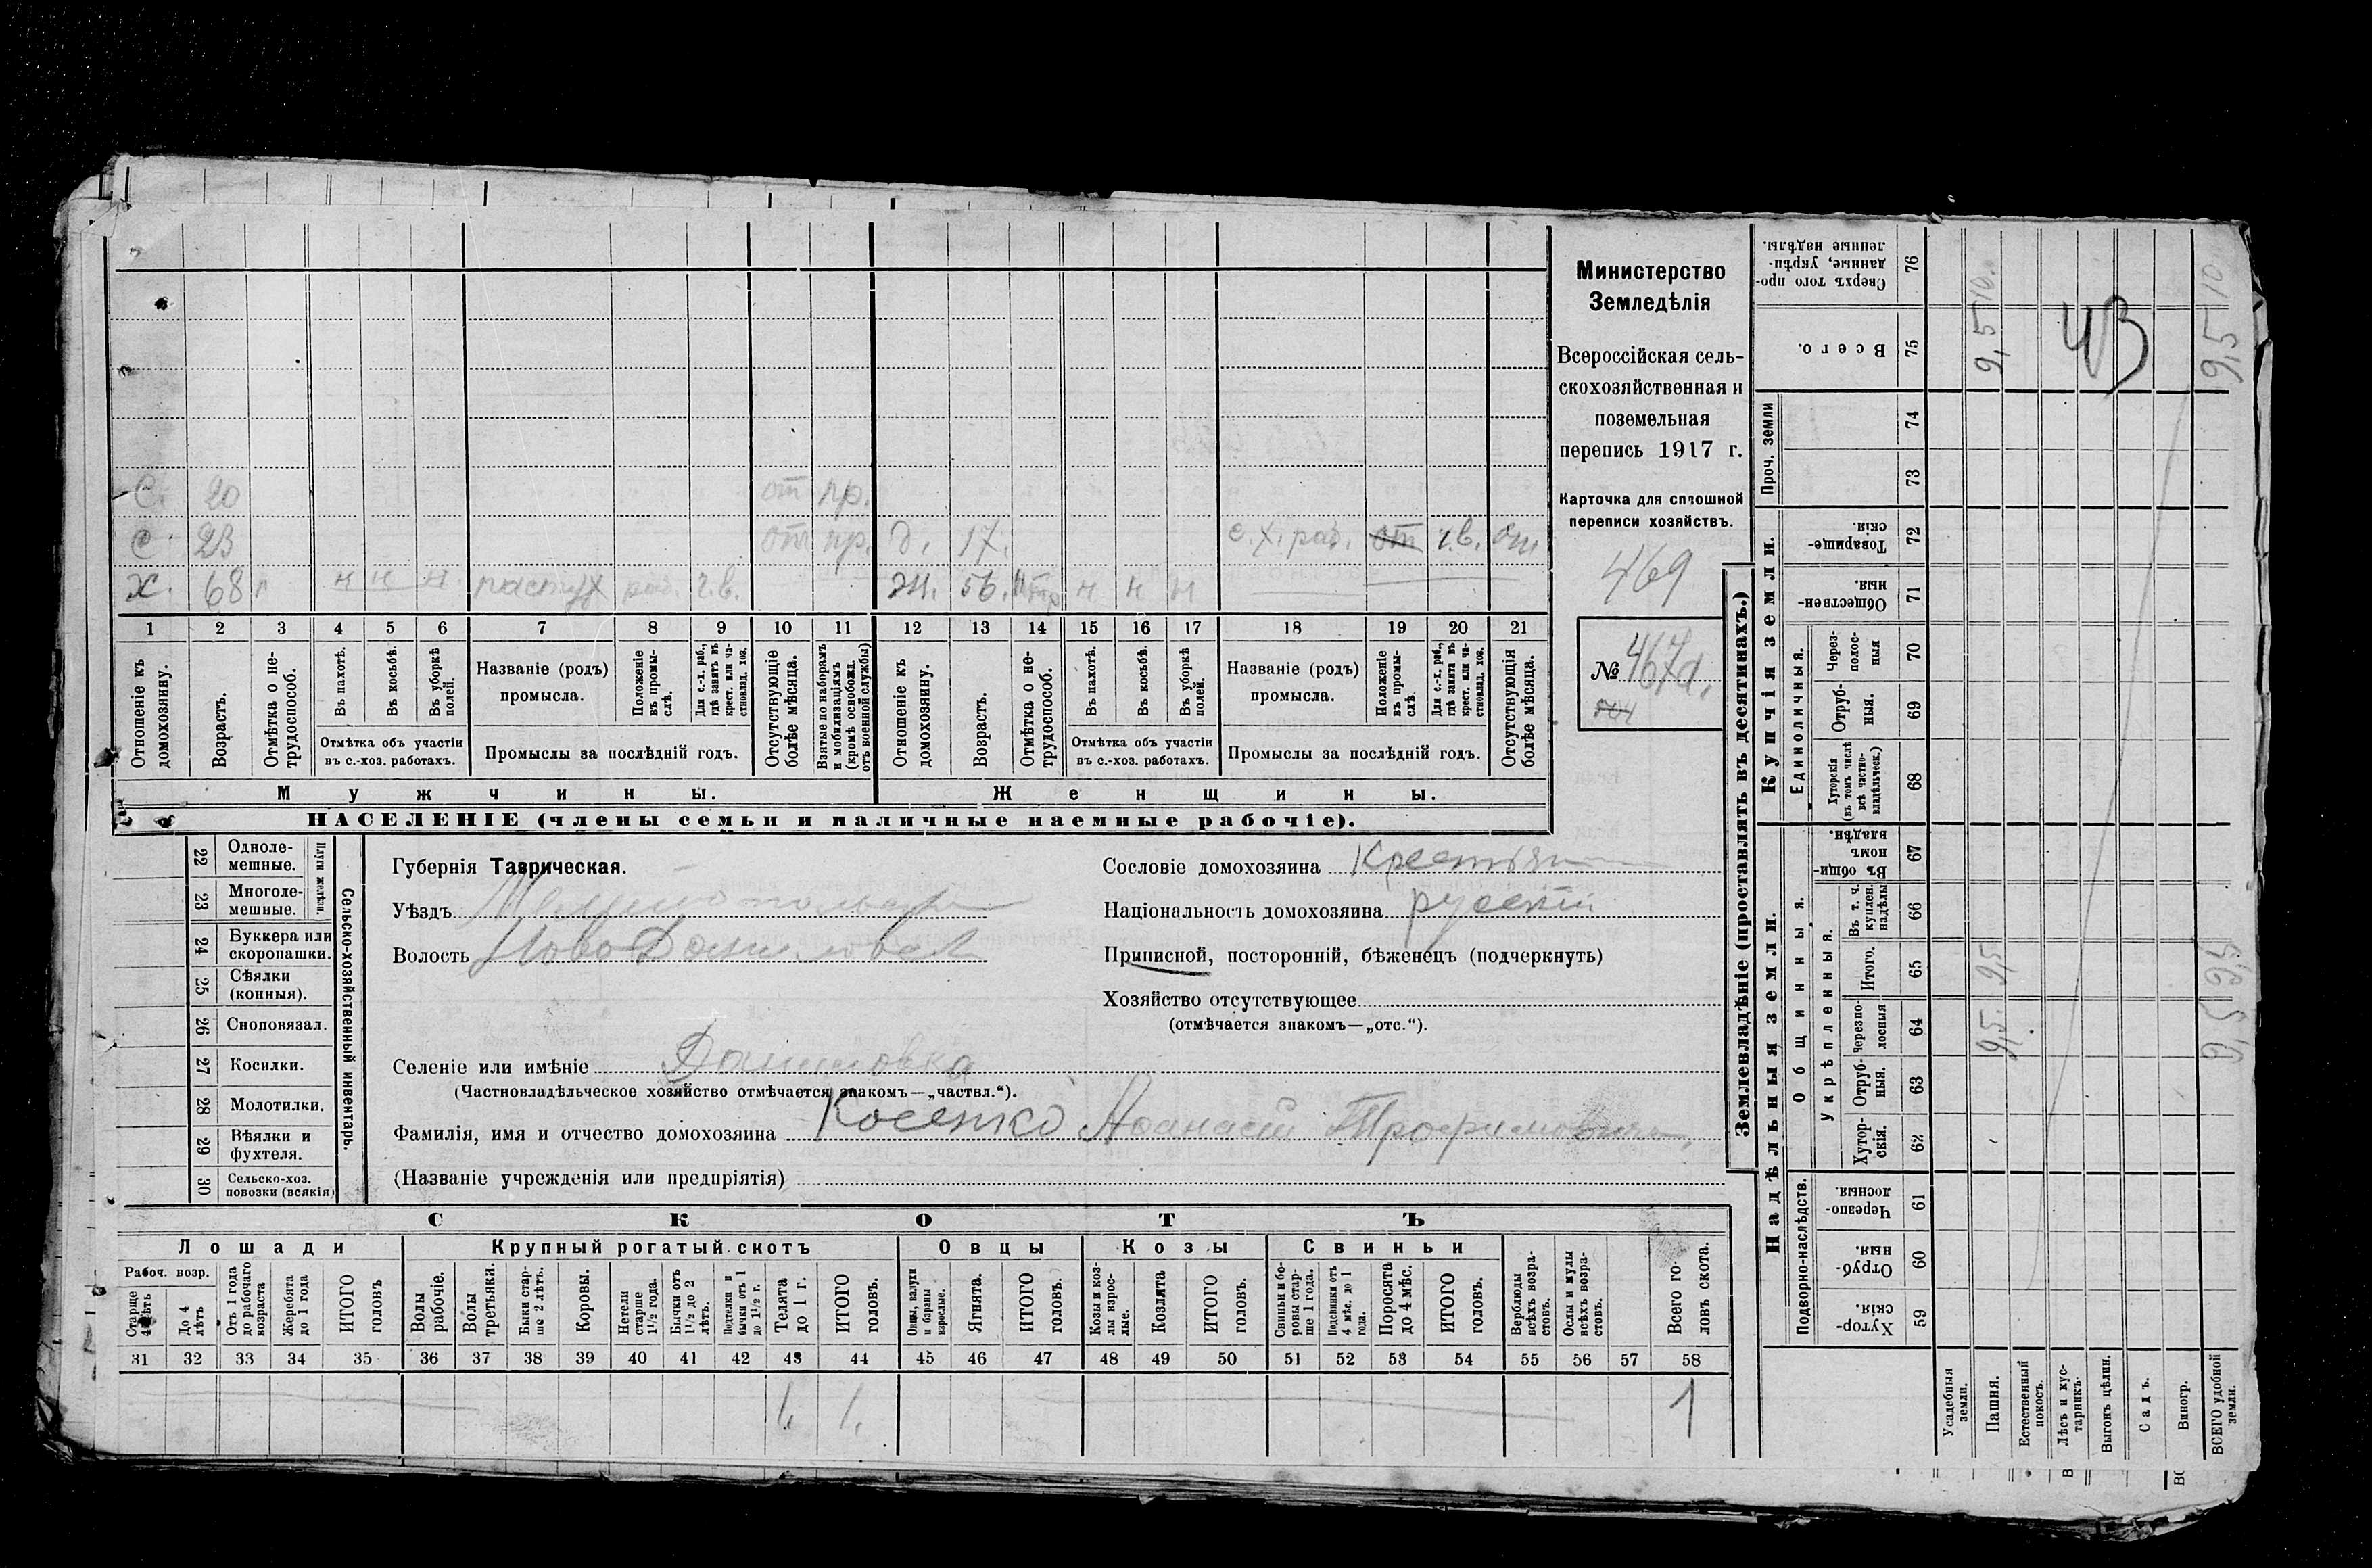 С. 20 от пр.
С 23 от пр. д. 17. с.х. раб. от ч.в. от
Х. 68 п н н н пастух раб. ч.в. ж. 56. н н н
1 2 3 4 5 6 7 8 9 10 11 12 13 14 15 16 17 18 19 20 21
Отношеніе къ домохозяину.
Возрастъ.
Отмѣтка о не-трудоспособ.
Въ пахотѣ.
Въ косьбѣ.
Въ уборкѣ полей.
Отмѣтка объ участіи
въ с.-хоз. работахъ.
Названіе (родъ)
промысла.
Положеніе въ промы-слѣ.
Для с.-х. раб., гдѣ занятъ въ крест. или ча-стновлад. хоз.
Промыслы за послѣдній годъ.
Отсутствующіе болѣе мѣсяца.
Взятые по наборамъ и мобилизаціямъ (кромѣ освобожд. отъ военной службы)
Отношеніе къ домохозяину.
Возрастъ.
Отмѣтка о не-трудоспособ.
Въ пахотѣ.
Въ косьбѣ.
Въ уборкѣ полей.
Отмѣтка объ участіи
въ с.-хоз. работахъ.
Названіе (родъ)
промысла.
Положеніе въ промы-слѣ.
Для с.-х. раб., гдѣ занята въ крест. или ча-стновлад. хоз.
Промыслы за послѣдній годъ.
Отсутствующія болѣе мѣсяца.
Мужчины. Женщины.
НАСЕЛЕНІЕ (члены семьи и наличные наемные рабочіе).
Министерство
Земледѣлія
Всероссійская сель-
скохозяйственная и
поземельная
перепись 1917 г.
Карточка для сплошной
переписи хозяйствъ.
469
№ 467а.
22 Одноле-
мешные.
23 Многоле-
мешные.
Плуги желѣзн.
24 Буккера или
скоропашки.
25 Сѣялки
(конныя).
26 Сноповязал.
27 Косилки.
28 Молотилки.
29 Вѣялки и
фухтеля.
30 Сельско-хоз.
повозки (всякія)
Сельско-хозяйственный инвентарь.
Губернія Таврическая.
Уѣздъ Мелитопольскій
Волость Ново Даниловская
Сословіе домохозяина Крестьян
Національность домохозяина русскій
Приписной, посторонній, бѣженецъ (подчеркнуть)
Хозяйство отсутствующее
(отмѣчается знакомъ—„отс.“).
Селеніе или имѣніе Даниловка
(Частновладѣльческое хозяйство отмѣчается знакомъ—„частвл.“).
Фамилія, имя и отчество домохозяина Косенко Афанасій Трофимовичъ.
(Названіе учрежденія или предпріятія)
СКОТЪ
Лошади Крупный рогатый скотъ Овцы Козы Свиньи
Рабоч. возр.
Старше 4 лѣтъ
До 4 лѣтъ
Отъ 1 года до рабочаго возраста
Жеребята до 1 года
ИТОГО головъ
Волы рабочіе.
Волы третьяки.
Быки стар-ше 2 лѣтъ.
Коровы.
Нетели старше 1½ года.
Бычки отъ 1½ до 2 лѣтъ.
Подтелки и бычки отъ 1 до 1½ г.
Телята до 1 г.
ИТОГО головъ.
Овцы, валухи и бараны взрослые.
Ягнята.
ИТОГО головъ.
Козы и коз-лы взрос-лые.
Козлята
ИТОГО головъ.
Свиньи и бо-ровы стар-ше 1 года.
Подсвинки отъ 4 мѣс. до 1 года.
Поросята до 4 мѣс.
ИТОГО головъ.
Верблюды всѣхъ возра-стовъ.
Ослы и мулы всѣхъ возра-стовъ.
Всего го-ловъ скота.
31 32 33 34 35 36 37 38 39 40 41 42 43 44 45 46 47 48 49 50 51 52 53 54 55 56 57 58
1. 1. 1
Землевладѣніе (проставлять въ десятинахъ.)
Надѣльныя земли. Купчія земли.
Подворно-наслѣдств.
Общинныя.
Укрѣпленныя.
Единоличныя.
Проч. земли
Хутор-скія. 59
Отруб-ныя. 60
Черезпо-лосныя 61
Хутор-скія. 62
Отруб-ныя. 63
Черезпо-лосныя 64
Итого. 65
Въ т. ч. куплен. надѣлы 66
Въ общи-номъ владѣн. 67
Хуторскія (въ томъ числѣ всѣ частно-владѣльческ.) 68
Отруб-ныя. 69
Через-полос-ныя 70
Обществен-ныя 71
Товарище-скія. 72
73
74
Всего. 75
Сверхъ того про-данные, укрѣп-ленные надѣлы. 76
Усадебныя земли.
Пашня. 9,5. 9,5 9,5
Естественный покосъ.
Лѣсъ и кус-тарникъ.
Выгонъ цѣлин.
Садъ.
Виногр.
ВСЕГО удобной земли. 9,5 9,5 9,5 10